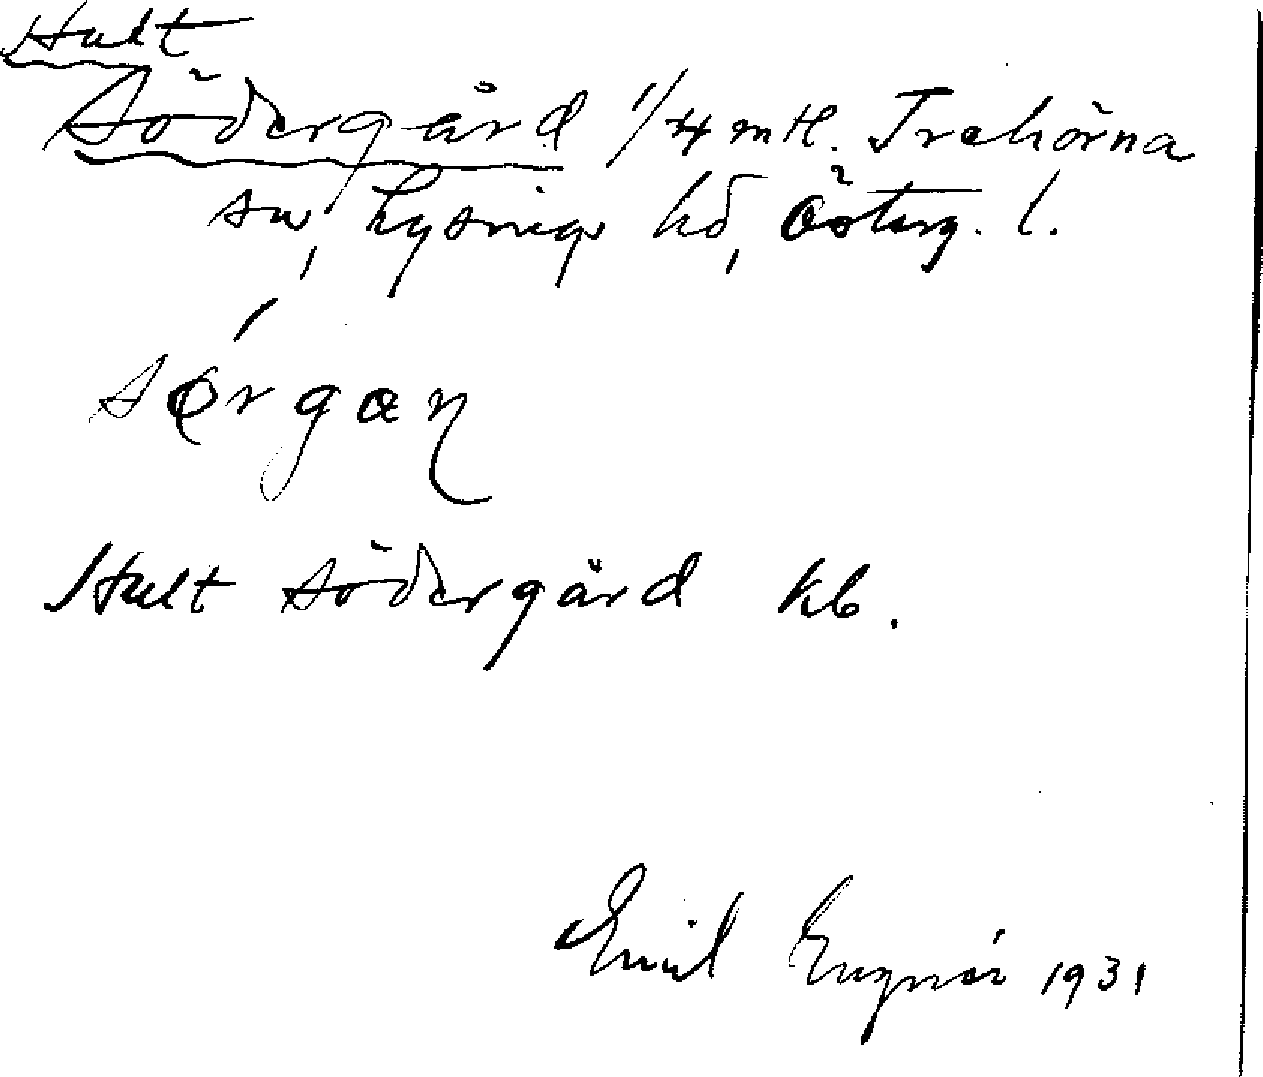 Hult
Södergård 1/4 mtl. Trehörna
sn, Lysings hd, Österg. l.
Hult Södergård kb.
Emil 1931